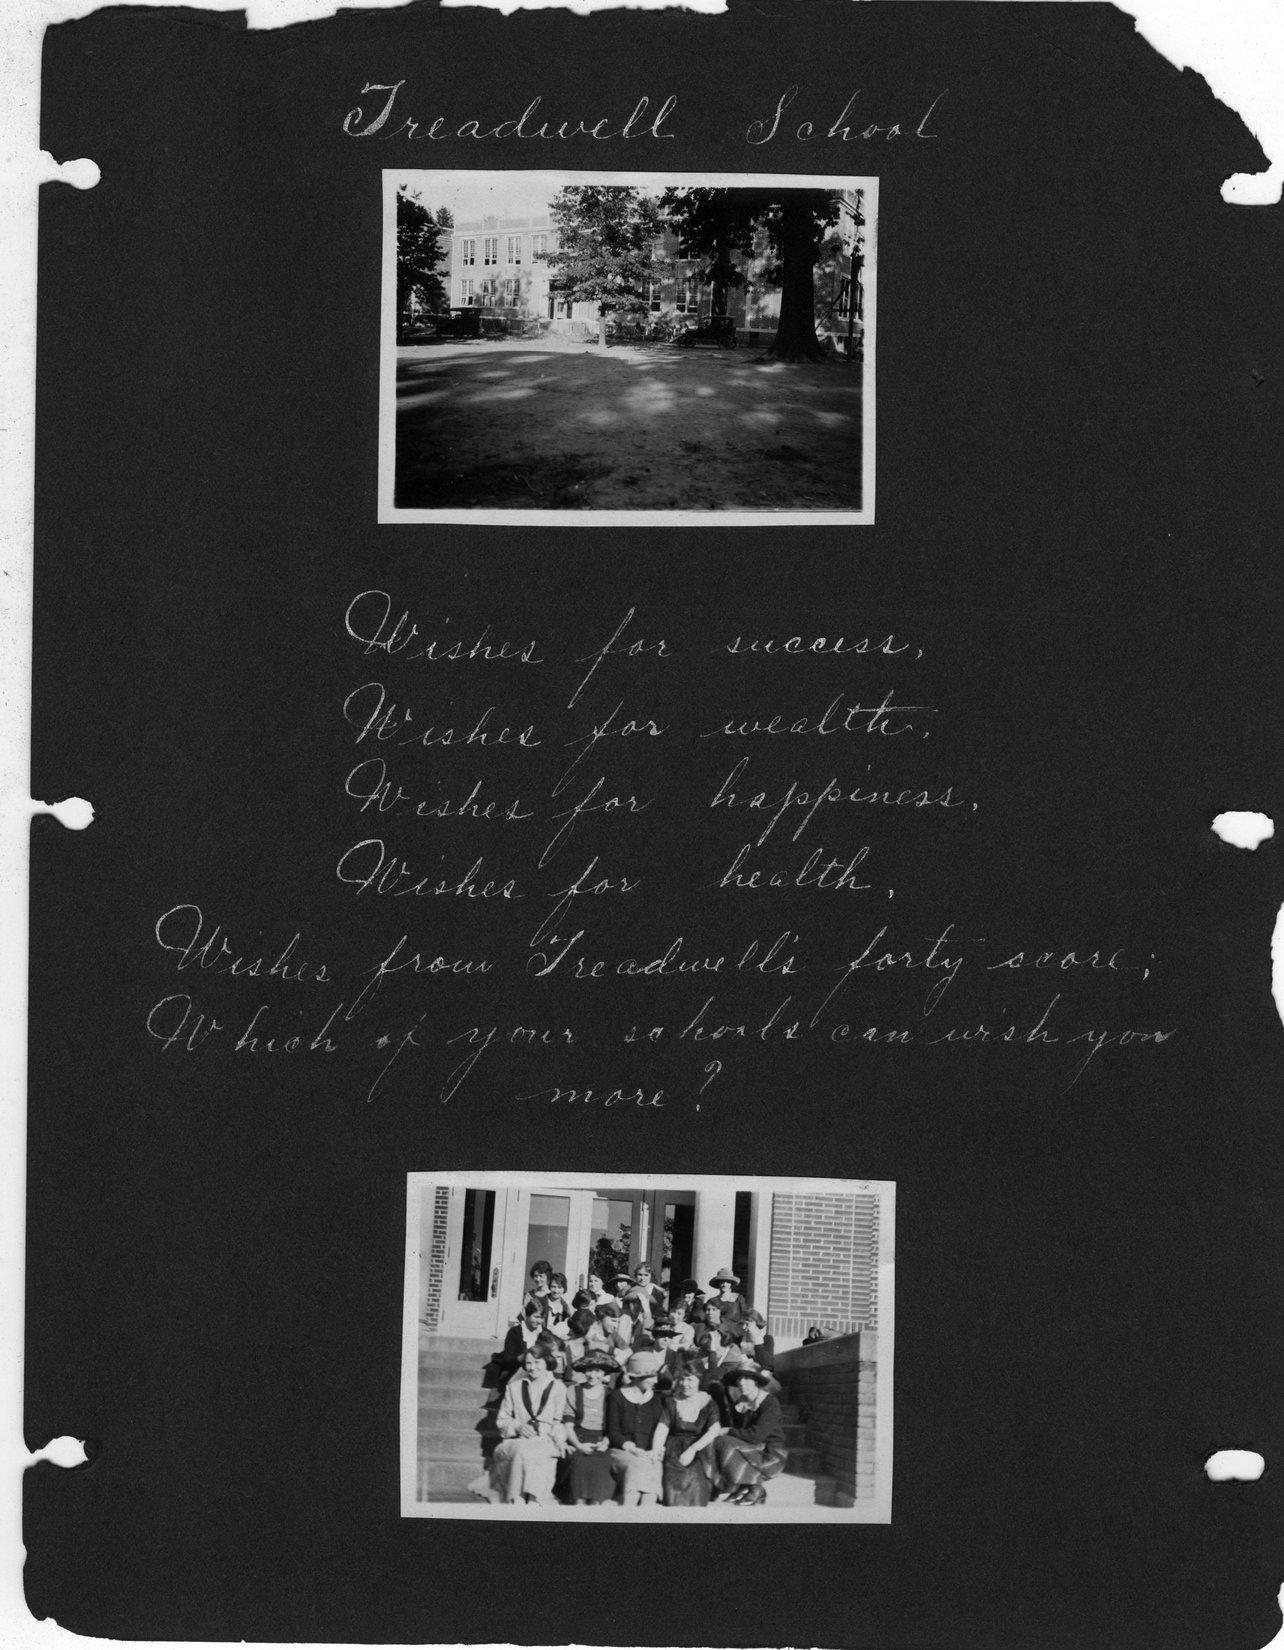 Treadwell School
Wishes for success,
Wishes for wealth,
Wishes for happiness,
Wishes for health,
Wishes from Treadwell's forty score;
Which of your schools can wish you
more?